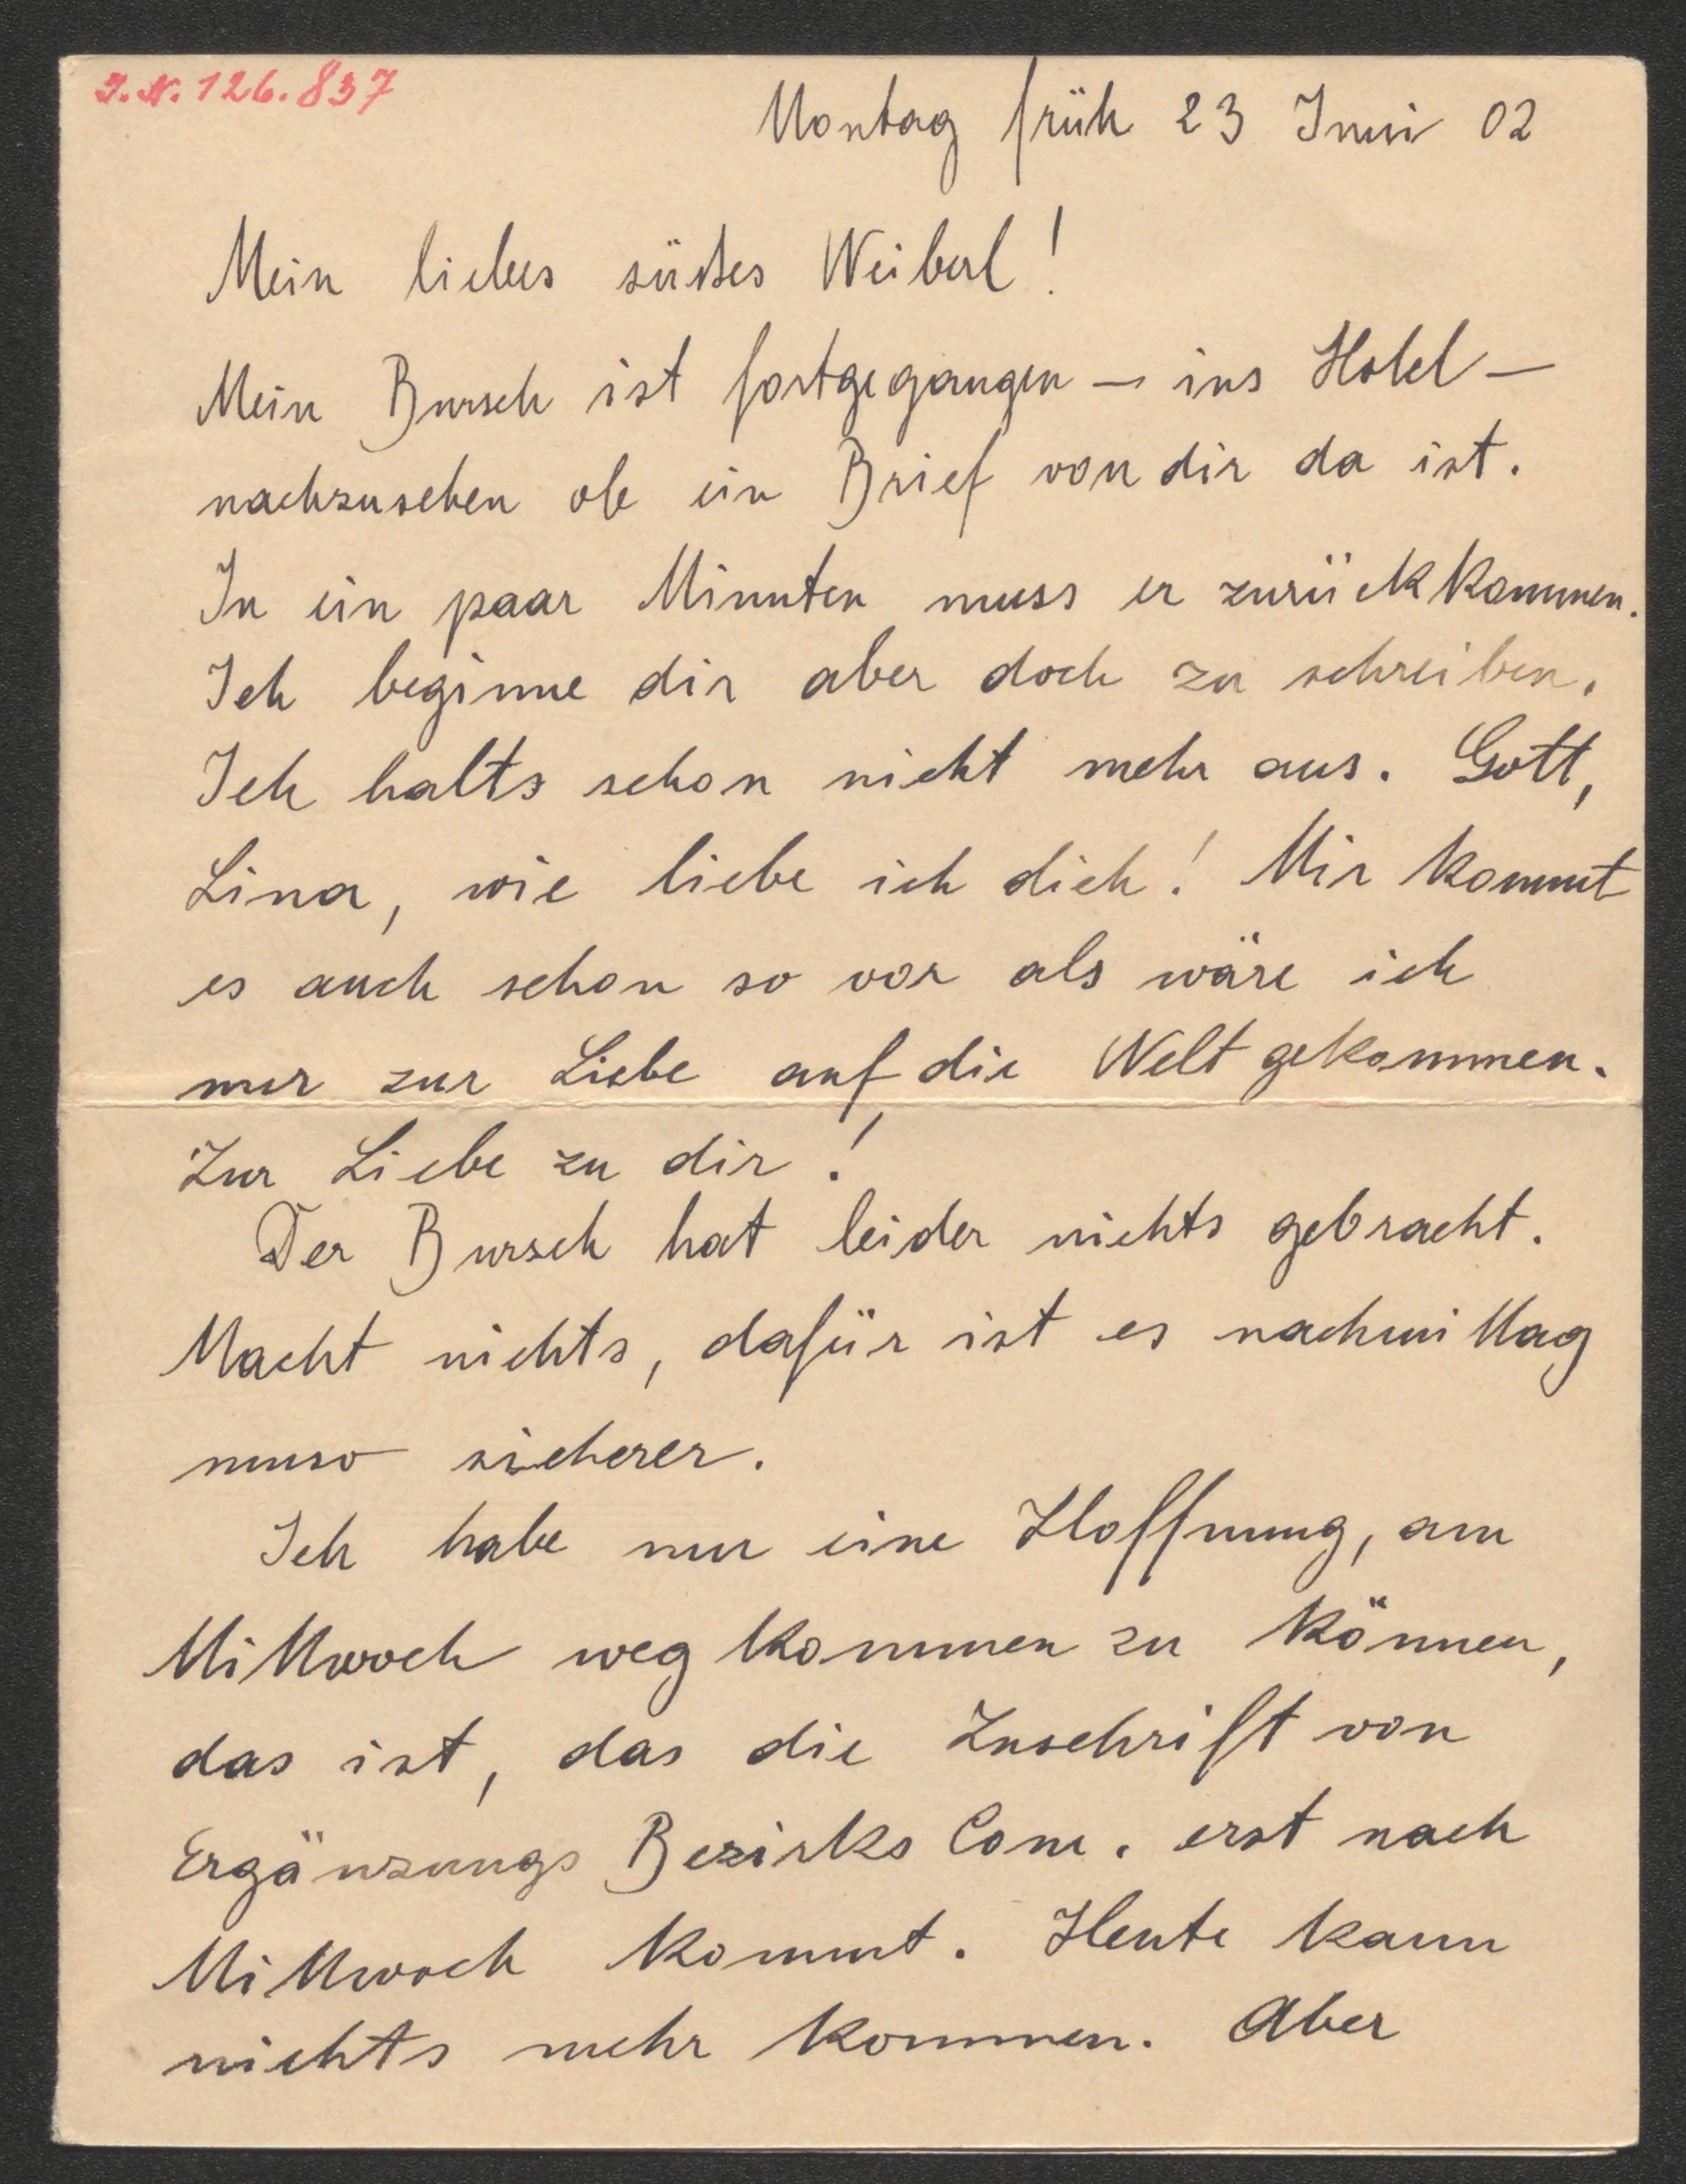 I.N. 126.837
Montag früh 23 Juni 02
Mein liebes süßes Weiberl!
Mein Bursch ist fortgegangen — ins Hotel —
nachzusehen ob ein Brief von dir da ist.
In ein paar Minuten muss er zurückkommen.
Ich beginne dir aber doch zu schreiben.
Ich halts schon nicht mehr aus. Gott,
Lina, wie liebe ich dich! Mir kommt
es auch schon so vor als wäre ich
nur zur Liebe auf die Welt gekommen.
Zur Liebe zu dir!
Der Bursch hat leider nichts gebracht.
Macht nichts, dafür ist es nachmittag
umso sicherer.
Ich habe nur eine Hoffnung, am
Mittwoch weg kommen zu können,
das ist, das die Zuschrift von
Ergänzungs Bezirks Com. erst nach
Mittwoch kommt. Heute kann
nichts mehr kommen. Aber